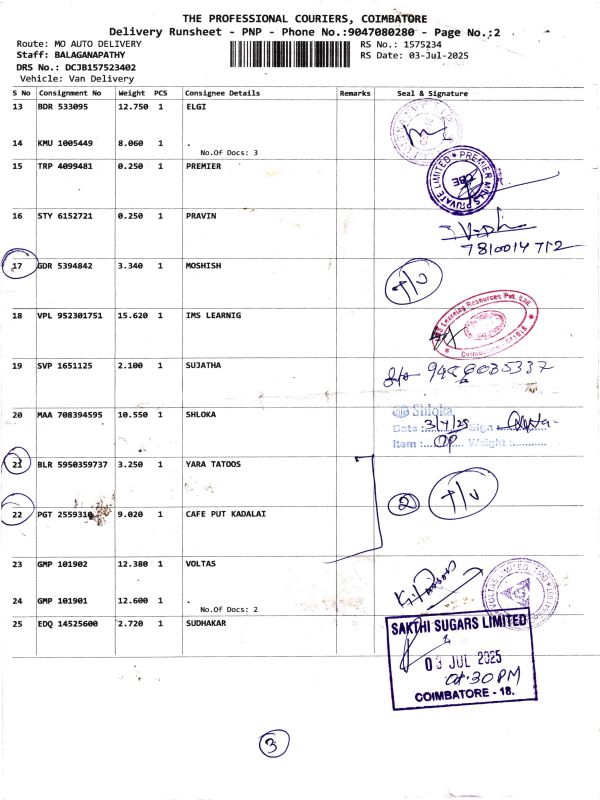 THE PROFESSIONAL COURIERS, COIMBATORE
Delivery Runsheet - PNP - Phone No.:9047080280 - Page No.:2
Route: MO AUTO DELIVERY RS No.: 1575234
Staff: BALAGANAPATHY RS Date: 03-Jul-2025
DRS No.: DCJB157523402
Vehicle: Van Delivery
S No Consignment No Weight PCS Consignee Details Remarks Seal & Signature
13 BDR 533095 12.750 1 ELGI
14 KMU 1005449 8.060 1 .
No.Of Docs: 3
15 TRP 4099481 0.250 1 PREMIER
PREMIER MILLS PRIVATE LIMITED
CBE
16 STY 6152721 0.250 1 PRAVIN
7810014712
17 GDR 5394842 3.340 1 MOSHISH
18 VPL 952301751 15.620 1 IMS LEARNIG
Learning Resources Pvt. Ltd.
19 SVP 1651125 2.100 1 SUJATHA
20 MAA 708394595 10.550 1 SHLOKA
Shloka
Date : 3/7/25 Sign :
Item : Weight :
21 BLR 5950359737 3.250 1 YARA TATOOS
2
22 PGT 2559310 9.020 1 CAFE PUT KADALAI
23 GMP 101902 12.380 1 VOLTAS
VOLTAS LIMITED
24 GMP 101901 12.600 1 .
No.Of Docs: 2
25 EDQ 14525600 2.720 1 SUDHAKAR
SAKTHI SUGARS LIMITED
03 JUL 2025
COIMBATORE - 18.
3